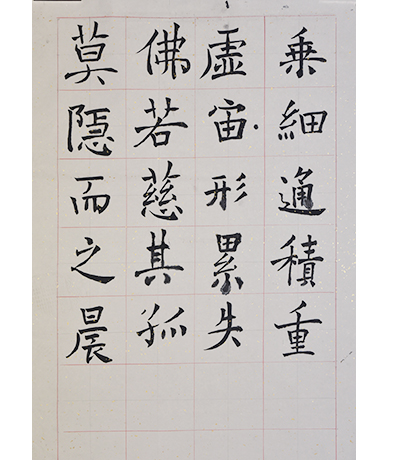 乘細通積重
虛宙形累失
佛若慈其孤
莫隱而之晨